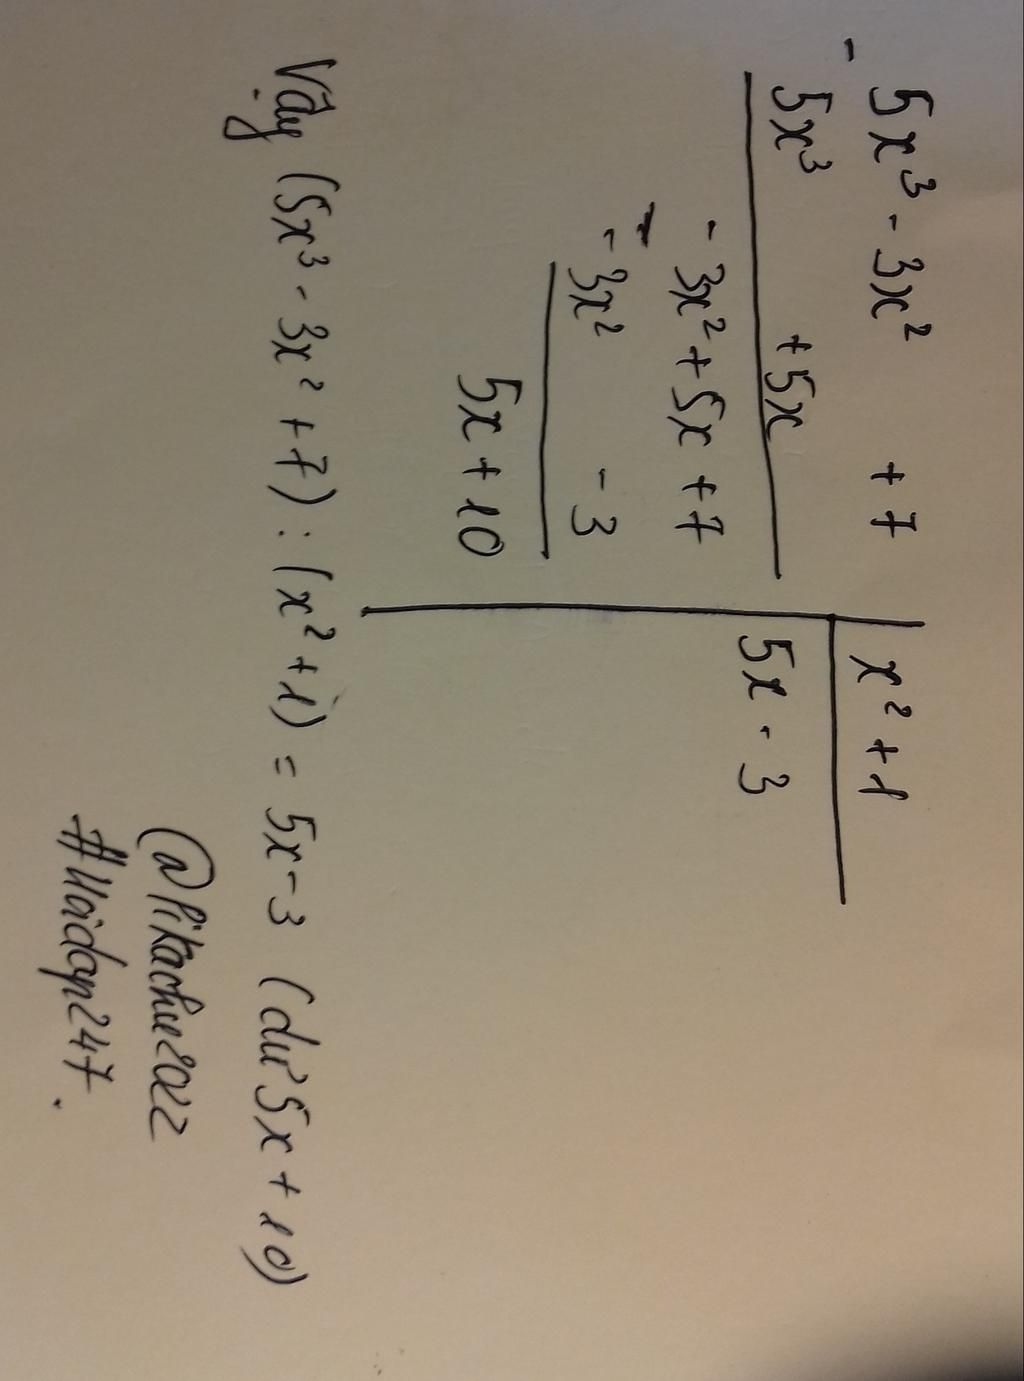 5x³ - 3x² + 7 | x² + 1
-
5x³ + 5x | 5x - 3
- 3x² + 5x + 7
-
- 3x² - 3
5x + 10
Vậy (5x³ - 3x² + 7) : (x² + 1) = 5x - 3 (dư 5x + 10)
@Pikachu2022
#Hoidap247.